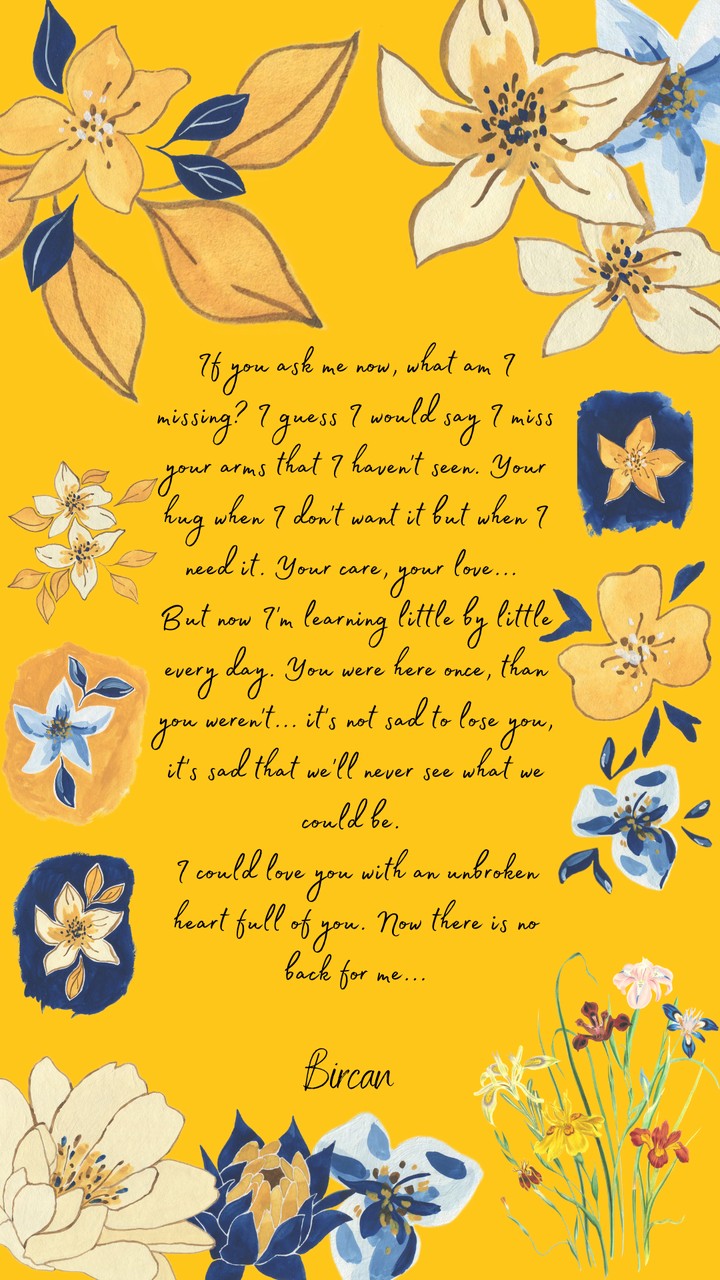 If you ask me now, what am I
missing? I guess I would say I miss
your arms that I haven't seen. Your
hug when I don't want it but when I
need it. Your care, your love...
But now I'm learning little by little
every day. You were here once, than
you weren't... it's not sad to lose you,
it's sad that we'll never see what we
could be.
I could love you with an unbroken
heart full of you. Now there is no
back for me...
Bircan